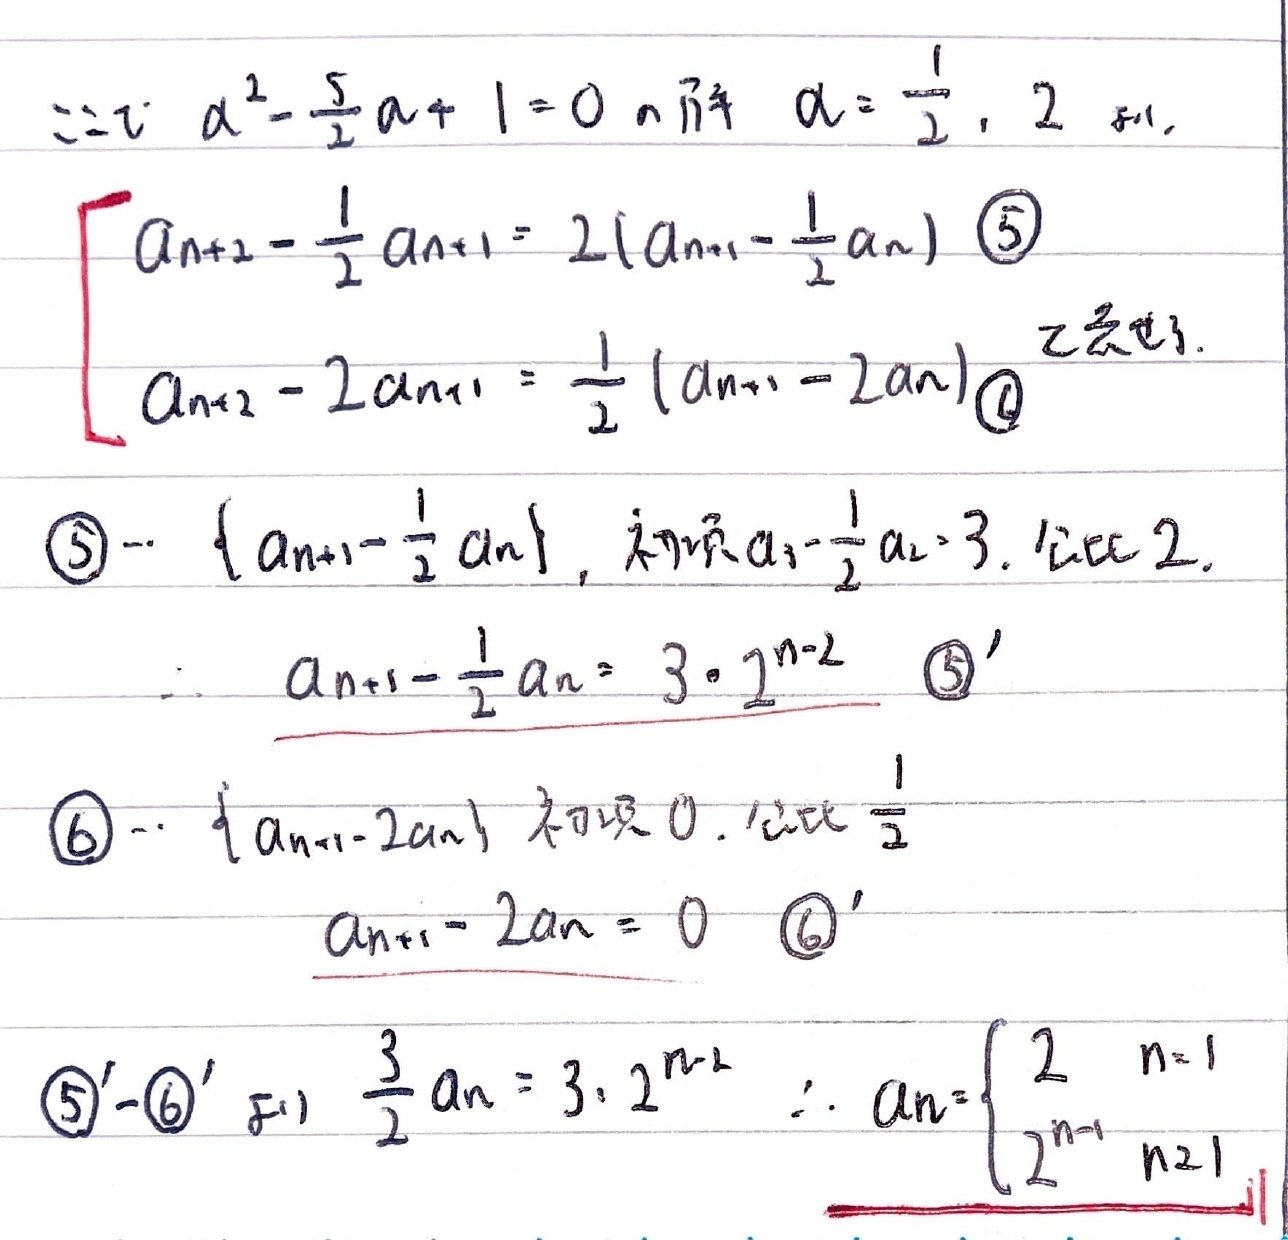 ここで α² - 5/2 α + 1 = 0 の解 α = 1/2, 2 より,
an+2 - 1/2 an+1 = 2(an+1 - 1/2 an) ⑤
an+2 - 2an+1 = 1/2 (an+1 - 2an) ⑥ と表せる.
⑤… {an+1 - 1/2 an}, 初項 a3 - 1/2 a2 = 3. 公比 2.
∴ an+1 - 1/2 an = 3・2^(n-2) ⑤'
⑥… {an+1 - 2an} 初項 0. 公比 1/2
an+1 - 2an = 0 ⑥'
⑤' - ⑥' より 3/2 an = 3・2^(n-2) ∴ an = { 2 n=1
2^(n-1) n≥1